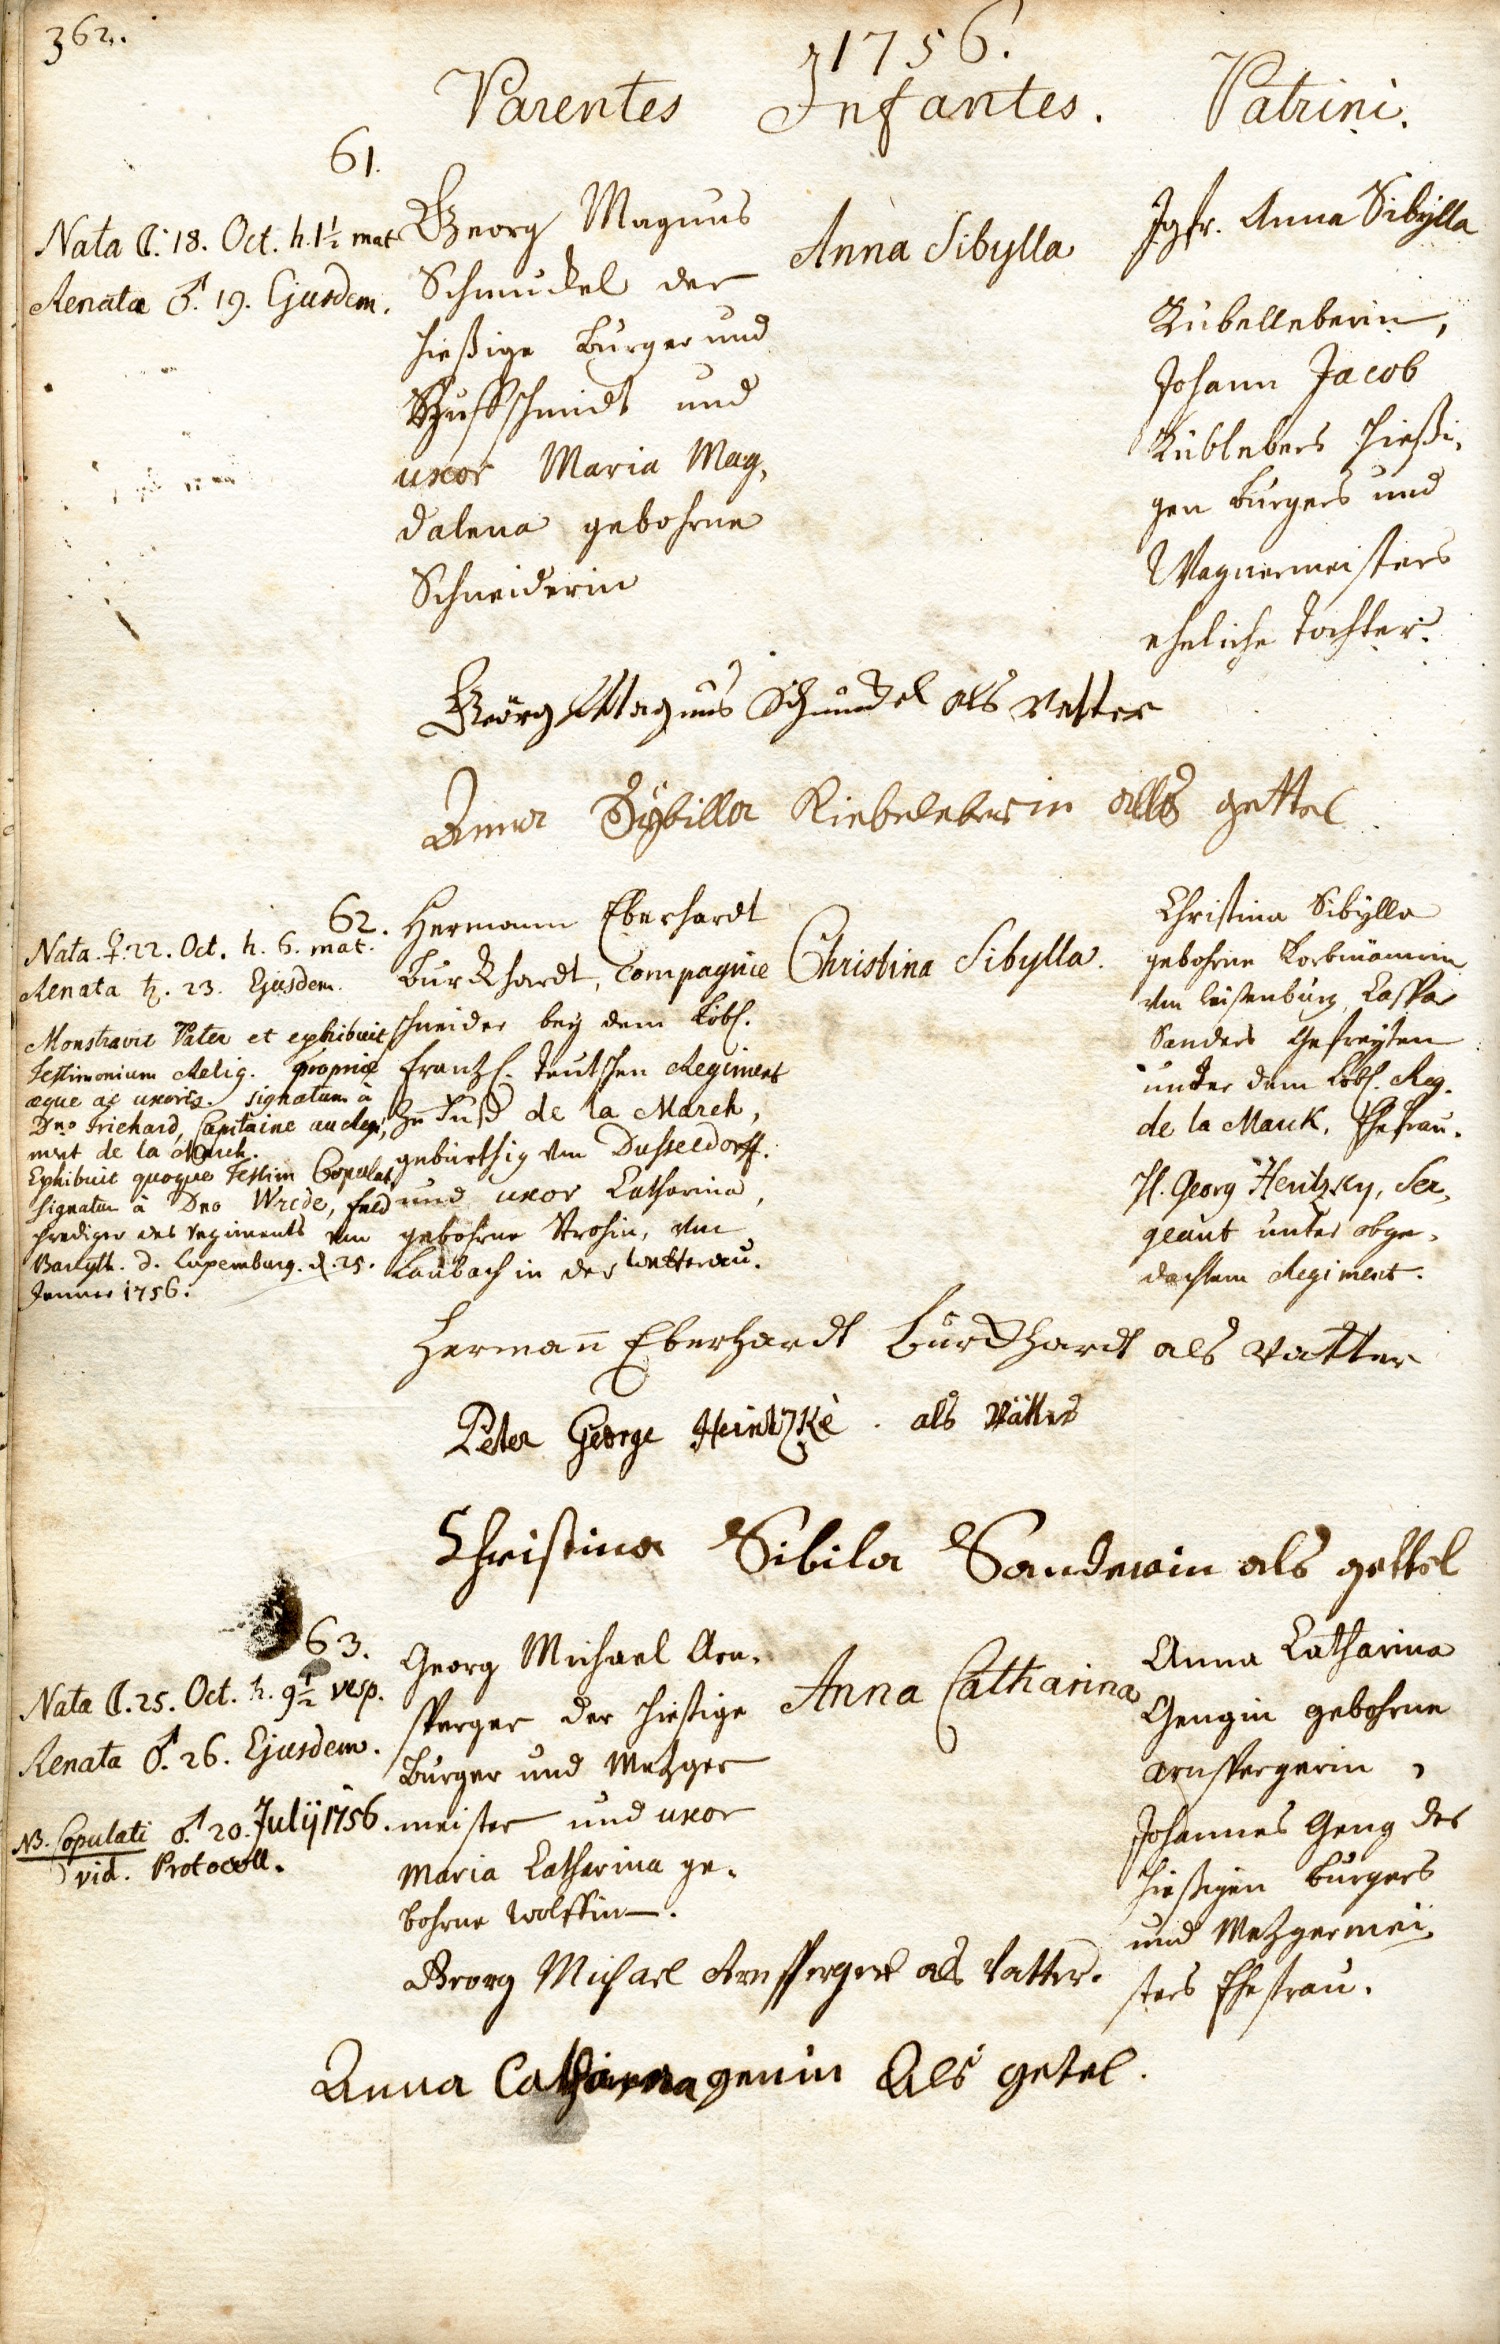 362.
1756.
Parentes Infantes. Patrini.
61.
Nata ☾. 18. Oct. h. 1½ mat
Renata ♂. 19. Ejusdem.
Georg Magnus
Schmuckel der
hießige Burger und
Huffschmidt und
uxor Maria Mag,
dalena gebohrne
Schneiderin
Anna Sibylla
Jgfr. Anna Sibylla
Kübelleberin,
Johann Jacob
Küblebers hießi,
gen Burgers und
Wagnermeisters
eheliche Tochter.
Georg Magnus Schmuckel als Vatter
Anna Sybilla Kiebeleberin alls gettel
62.
Nata. ♀. 22. Oct. h. 6. mat.
Renata ♄. 23. Ejusdem.
Monstravit Pater et exhibuit
Testimonium Relig. propriæ
æque ac uxoris. signatum à
Dno Trichard, Capitaine au Regi,
ment de la Marck.
Exhibuit quoque Testim Copulat.
signatum à Dno Wrede, feld
prediger des Regiments von
d. Luxemburg. d. 25.
Jenner 1756.
Hermann Eberhardt
Burckhardt, Compagnie
schneider bey dem Löbl.
Frantzl. Teutschen Regiment
zu Fuß de la Marck,
gebürthig von Dusseldorff.
und uxor Catharina,
gebohrne Strohin, von
Laubach in der Wetterau.
Christina Sibylla.
Christina Sibylla
gebohrne Korbmännin
von Caspar
Sanders Gefreyten
unter dem Löbl. Reg.
de la Marck, Ehefrau.
H. Georg Heritzky, Ser,
geant unter obge,
dachtem Regiment.
Hermann Eberhardt Burckhardt als Vatter
Peter George Heintzkè. als
Christina Sibila Sanderin als gettel
63.
Nata ☾. 25. Oct. h. 9½ vesp.
Renata ♂. 26. Ejusdem.
NB. Copulati ♂. 20. Julÿ 1756.
vid. Protocoll.
Georg Michael Arn,
sperger der hießige
Burger und Metzger
meister und uxor
Maria Catharina ge,
bohrne Wolffin.
Anna Catharina
Anna Catharina
Gengin gebohrne
Arnspergerin,
Johannes Geng des
hießigen Burgers
und Metzgermei,
sters Ehefrau.
Georg Michael Arnsperger als Vatter.
Anna Catharina genin Als getel.